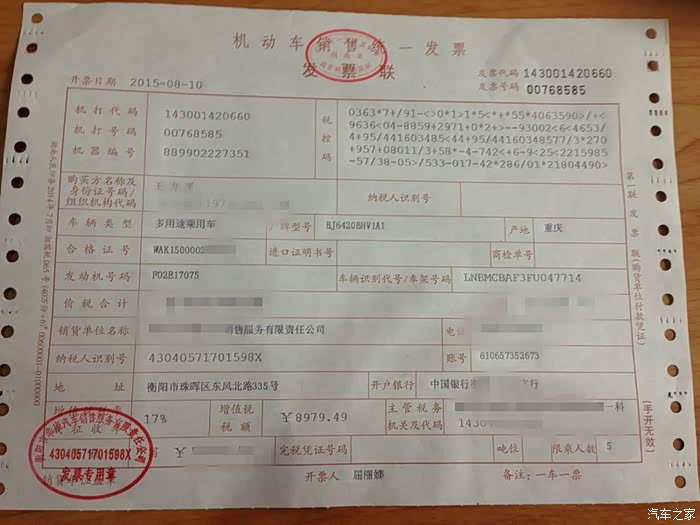 机动车销售统一发票
发票联
开票日期 2015-08-10
发票代码 143001420660
发票号码 00768585
机打代码 143001420660
机打号码 00768585
机器编号 889902227351
税控码
0363*7+/91-<>0*1>1*5<*+*55*4063590>/+<
9636<04-8859+2971+0*2+>--93002<6<4653/
4+95/441603485<44+95/44160348577/3*270
+957+08011/3+58*-4-742<+6-9<25<2215985
-57/38-05>/533-017-42*286/01*21804490>
购买方名称及
身份证号码/
组织机构代码
纳税人识别号
车辆类型 多用途乘用车 厂牌型号 BJ6420BHV1A1 产地 重庆
合格证号 WAK1500002 进口证明书号 商检单号
发动机号码 F02B17075 车辆识别代号/车架号码 LNBMCBAF3FU047714
价税合计
销货单位名称 销售服务有限责任公司 电话
纳税人识别号 43040571701598X 账号 610657352673
地址 衡阳市珠晖区东风北路335号 开户银行 中国银行 支行
17% 增值税税额 ￥8979.49 主管税务机关及代码 一科
1430
￥ 完税凭证号码 吨位 限乘人数 5
43040571701598X
发票专用章
开票人 屈丽娜 备注：一车一票
第一联 发票联(购货单位付款凭证)
(手开无效)
汽车之家